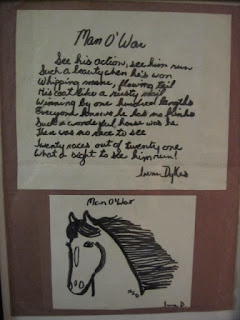 Man O'War
See his action, see him run
Such a beauty when he's won
Whipping mane, flowing tail
His coat like a rusty nail
Winning by one hundred lengths
Everyone knows he has no
Such a wonderful horse was he
There was no race to see
Twenty races out of twenty one
What a sight to see him run!
Dykes
Man O'War